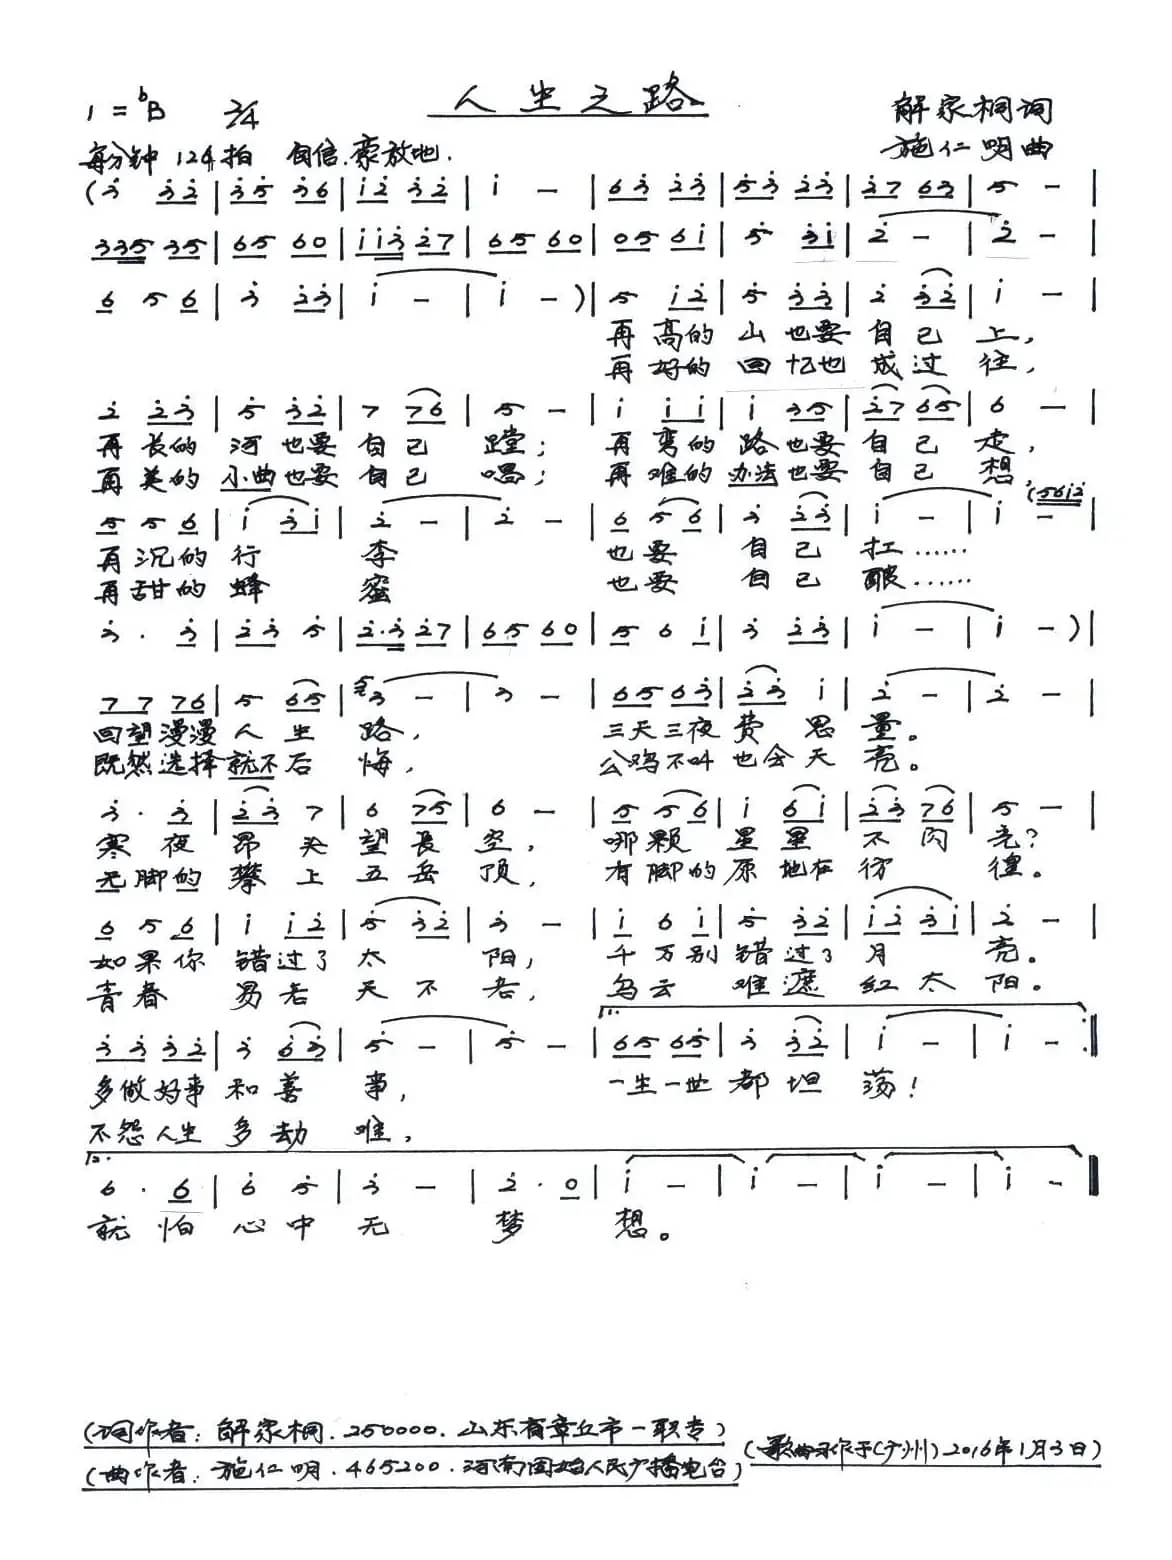 人生之路
1=♭B 2/4 解家桐词
每分钟124拍 自信.豪放地. 施仁明曲
(3̇ 3̇2̇ | 3̇5̇ 3̇6 | i2̇ 3̇2̇ | i － | 63̇ 2̇3̇ | 5̇3̇ 2̇3̇ | 2̇7 63 | 5 － |
335 35 | 65 60 | ii3̇ 2̇7 | 65 60 | 05 6i | 5̇ 3̇i | 2̇ － | 2̇ － |
6 5 6 | 3̇ 2̇3̇ | i － | i －) | 5 i2̇ | 5̇ 3̇3̇ | 2̇ 3̇2̇ | i － |
再高的山也要自己上,
再好的回忆也成过往,
2̇ 2̇3̇ | 5̇ 3̇2̇ | 7 76 | 5 － | i i i | i 35 | 2̇7 65 | 6 － |
再长的河也要自己蹚; 再弯的路也要自己走,
再美的小曲也要自己唱; 再难的办法也要自己想,
(56i2̇
5 5 6 | i 3̇i | 2̇ － | 2̇ － | 6 5 6 | 3̇ 2̇3̇ | i － | i － |
再沉的行李 也要自己扛……
再甜的蜂蜜 也要自己酿……
3̇. 3̇ | 2̇3̇ 5̇ | 2̇.3̇ 2̇7 | 65 60 | 5 6 i | 3̇ 2̇3̇ | i － | i －) |
7 7 76 | 5 65 | 3 － | 3 － | 65 63̇ | 2̇3̇ i | 2̇ － | 2̇ － |
回望漫漫人生路, 三天三夜费思量。
既然选择就不后悔, 公鸡不叫也会天亮。
3̇. 3̇ | 2̇3̇ 7 | 6 75 | 6 － | 5 5 6 | i 6i | 2̇3̇ 76 | 5 － |
寒夜昂头望长空, 哪颗星星不闪亮?
无脚的攀上五岳顶, 有脚的原地在彷徨。
6 5 6 | i i2̇ | 5̇ 3̇2̇ | 3̇ － | i 6 i | 5̇ 3̇2̇ | i2̇ 3̇i | 2̇ － |
如果你错过了太阳, 千万别错过了月亮。
青春易老天不老, 乌云难遮红太阳。
1.
3̇3̇ 3̇2̇ | 3̇ 63̇ | 5̇ － | 5̇ － | 65 65 | 3̇ 3̇2̇ | i － | i － :‖
多做好事和善事, 一生一世都坦荡!
不怨人生多劫难,
2.
6. 6 | 6 5̇ | 3̇ － | 2̇. 0 | i － | i － | i － | i － ‖
就怕心中无梦想。
(词作者: 解家桐.250000.山东省章丘市一职专)
(歌曲习作于(广州)2016年1月3日)
(曲作者: 施仁明.465200.河南固始人民广播电台)